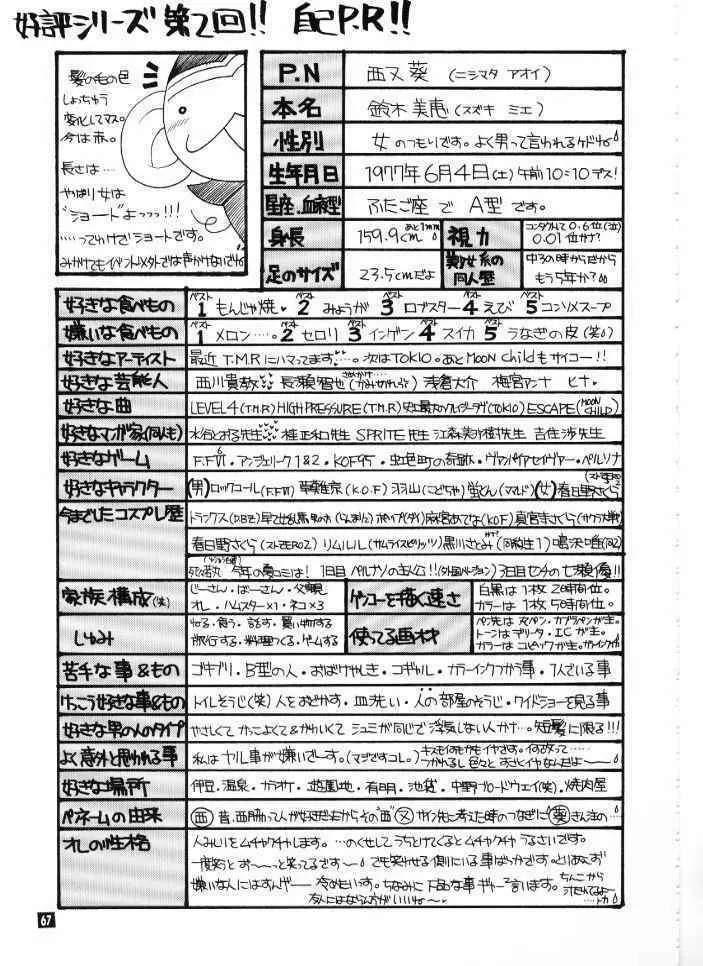 好評シリーズ第2回!! 自己P.R!!
髪の毛の色
しょっちゅう
変化してマス。
今は赤。
長さは…
やはり女は
"ショート"よっっっ!!!
……ってわけでショートです。
みかけてもイベント×外では声かけないでね
P.N 西又葵(ニシマタ アオイ)
本名 鈴木美恵(スズキ ミエ)
性別 女のつもりです。よく男って言われるケドね
生年月日 1977年6月4日(土)午前10:10デス!
星座、血液型 ふたご座で A型です。
身長 159.9cm あと1mm
視力 コンタクトで0.6位(泣) 0.01位かな?
足のサイズ 23.5cmだよ
美少女系の同人歴 中3の時からだから もう5年か?
好きな食べもの ベスト1もんじゃ焼 ベスト2みょうが ベスト3ロブスター ベスト4えび ベスト5コンソメスープ
嫌いな食べもの ベスト1メロン…。ベスト2セロリ ベスト3インゲン ベスト4スイカ ベスト5うなぎの皮(笑)
好きなアーティスト 最近T.M.Rにハマってます…。次はTOKIO。あとMOON childもサイコー!!
好きな芸能人 西川貴教 長瀬智也 浅倉大介 梅宮アンナ ヒナ
好きな曲 LEVEL4(T.M.R)HIGH PRESSURE(T.M.R)史上最大のクルーザーデイ(TOKIO)ESCAPE(MOON CHILD)
好きなマンガ家(同人も) 水谷とおる先生 桂正和先生 SPRITE先生 江森美沙樹先生 吉住渉先生
好きなゲーム F.FⅥ・アンジェリーク1&2・KOF95・虹色町の奇跡・ヴァンパイアセイヴァー・ペルソナ
好きなキャラクター (男)ロックコール(F.FⅥ)草薙京(K.O.F)羽山(こどちゃ)蛍どん(ママレド)(女)春日野さくら(ストZERO2)
今までしたコスプレ歴 トランクス(DBZ)早乙女乱馬男のみ(らんま½)ポップ(ダイ)麻宮あてな(KOF)真宮寺さくら(サクラ大戦)
春日野さくら(ストZERO2)リムルル(サムライスピリッツ)黒川さとみ(同級生1)鳴沢唯(同2)
今年の夏コミは! 1日目ペルソナの主人公!!(外国バージョン)3日目センチの七瀬優!!
家族構成(笑) じーさん・ばーさん・父親母 オレ・ハムスター×1・ネコ×3
ゲンコーを描く速さ 白黒は1枚2時間位。 カラーは1枚5時間位。
しゅみ ねる・食う・話す・買い物する 旅行する・料理つくる・ゲームする
使ってる画材 ペン先は丸ペン・カブラペンが主。 トーンはデリータ・ICが主。 カラーはコピックが主。カラーインクも
苦手な事&もの ゴキブリ・B型の人・おばけやしき・コギャル・カラーインクつかう事・1人でいる事
けっこう好きな事&もの トイレそうじ(笑)人をおどかす・皿洗い・人の部屋のそうじ・ワイドショーを見る事
好きな男の人のタイプ やさしくてかっこよくてかわいくてシュミが同じで浮気しない人かナ…。短髪に限る!!!
よく意外と思われる事 私はヤル事が嫌いでーす。(マジですコレ。)キスもおカオもイヤです。何故って… つかれるし色々とすごくイヤなんだよー
好きな場所 伊豆・温泉・カラオケ・遊園地・有明・池袋・中野ブロードウェイ(笑)・焼肉屋
ペンネームの由来 (西)昔、西脇って人が好きだったからその"西"(又)サイン先に考えた時のつなぎに(葵)さん注の…
オレの性格 人みしいをムチャクチャします。…のくせしてうちとけてくるとムチャクチャうるさいです。
一度笑うとお〜〜っと笑ってるです〜 でも笑わせる側にいる事ばっかです。とりあえず
嫌いな人にはすんげー冷めたいす。ちなみに下品な事ギャーギャー言います。
友人にはならん方がいいね〜
67